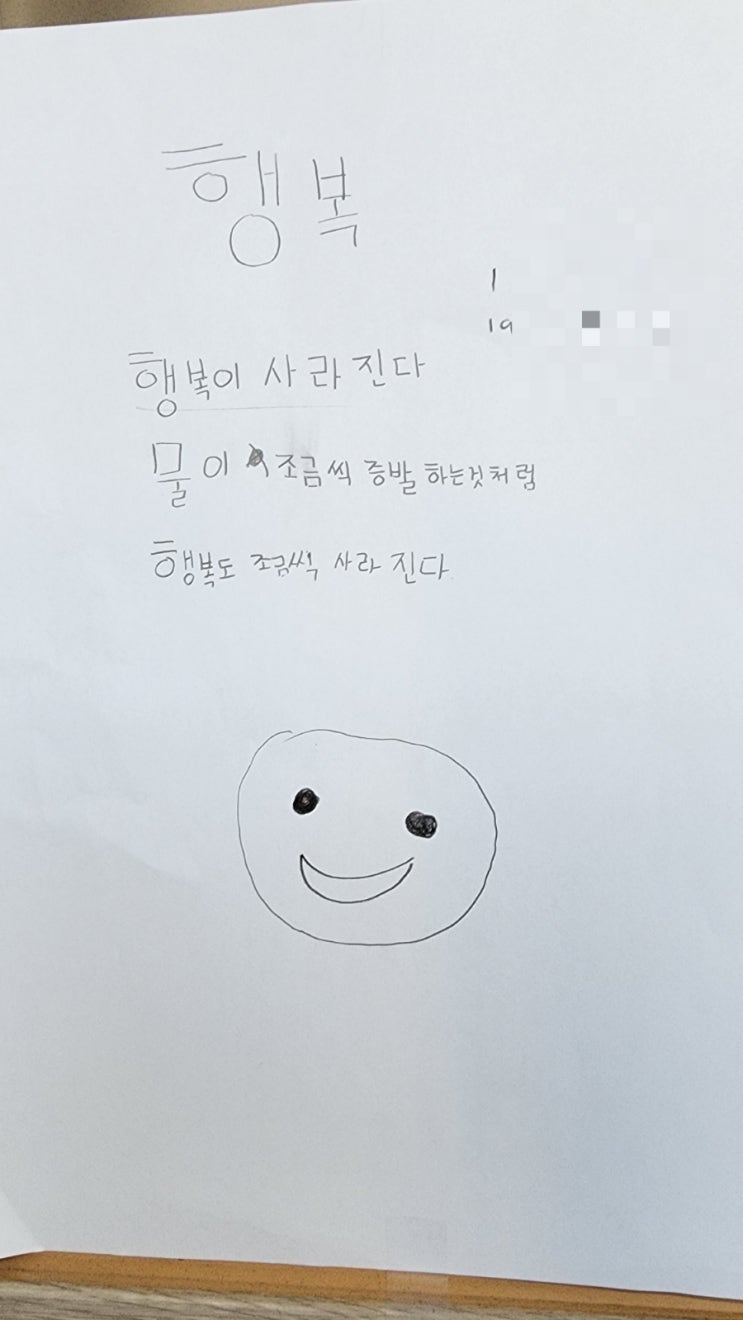 행복
1
19
행복이 사라진다
물이 조금씩 증발하는것처럼
행복도 조금씩 사라진다